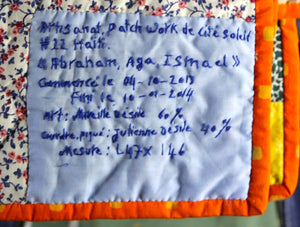 Artisanat, Patch work de cité soleil
#22 Haïti.
« Abraham, Aga, Ismael »
Commencé le 04-10-2013
Fini le 10-01-2014
Art: Mireille Désile 60%
Coudre, piqué: Julienne Desile 40%
Mesure: L47X l46